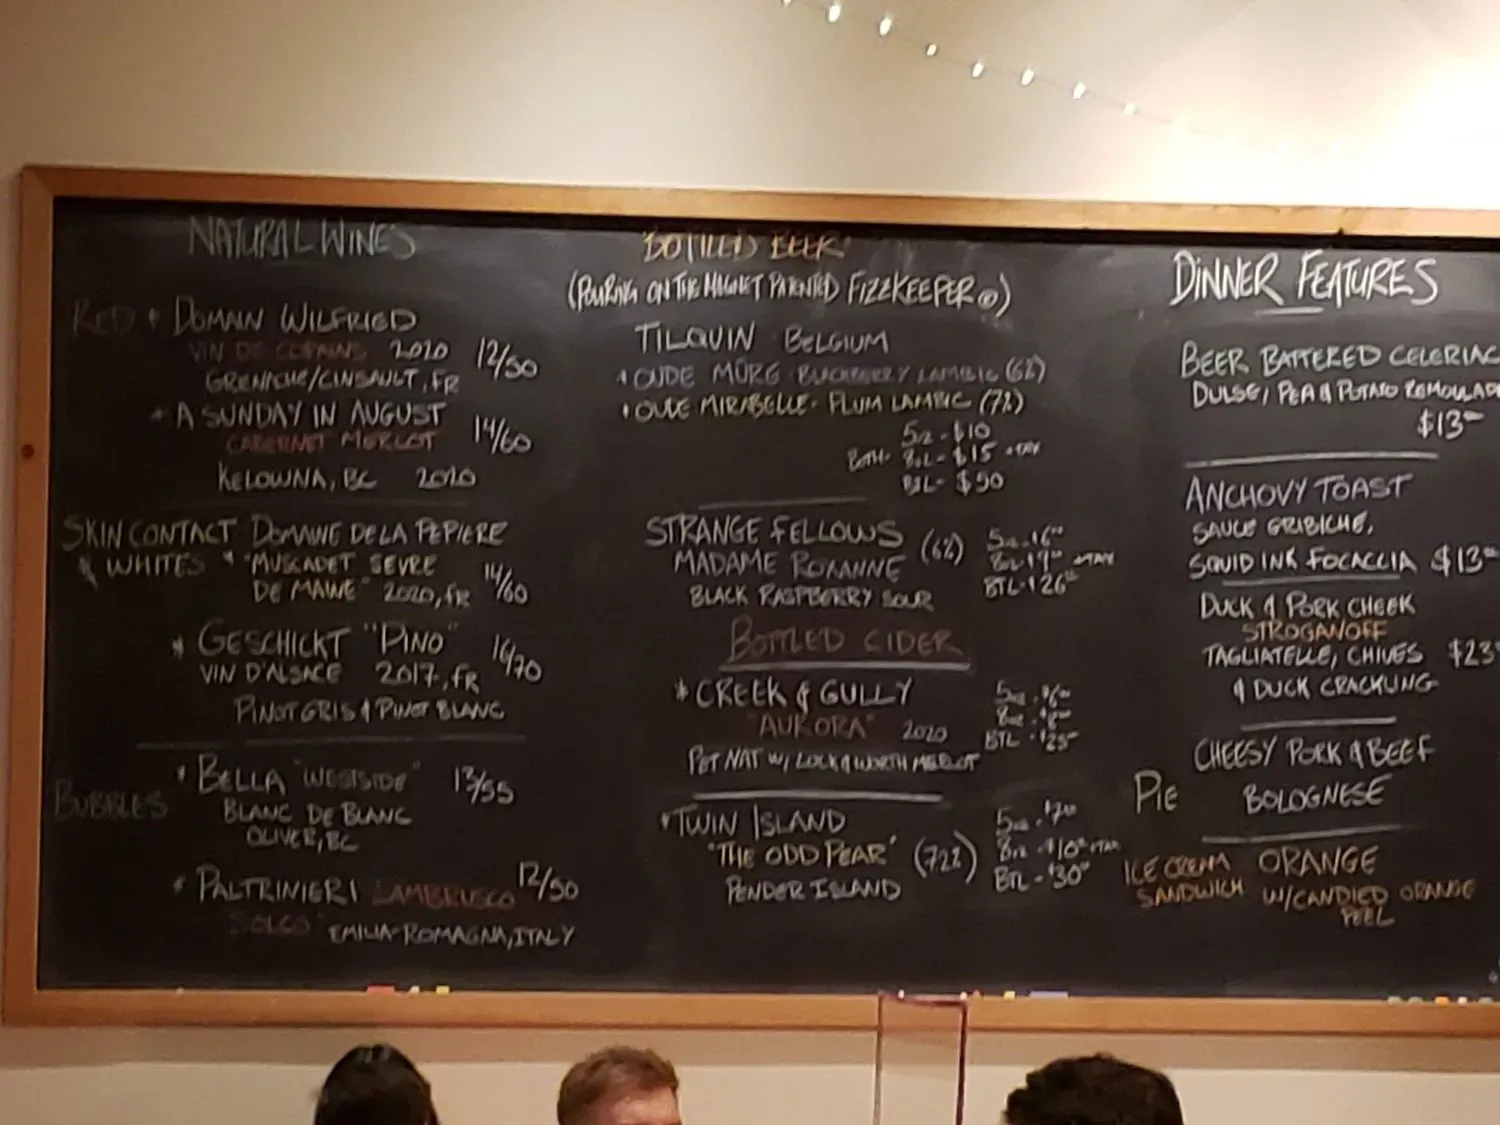 NATURAL WINES
RED * DOMAIN WILFRIED
VIN DE COPAINS 2020 12/50
GRENACHE/CINSAULT, FR
* A SUNDAY IN AUGUST
CABERNET MERLOT 14/60
KELOWNA, BC 2020
SKIN CONTACT DOMAINE DE LA PEPIERE
& WHITES * "MUSCADET SEVRE
DE MAINE" 2020, FR 14/60
* GESCHICKT "PINO" 16/70
VIN D'ALSACE 2017, FR
PINOT GRIS & PINOT BLANC
BUBBLES * BELLA "WESTSIDE" 13/55
BLANC DE BLANC
OLIVER, BC
* PALTRINIERI LAMBRUSCO 12/50
SOLCO EMILIA-ROMAGNA, ITALY
BOTTLED BEER
(POURING ON THE MAGNET PATENTED FIZZKEEPER ®)
TILQUIN BELGIUM
* OUDE MÛRE - BLACKBERRY LAMBIC (6%)
* OUDE MIRABELLE - PLUM LAMBIC (7%)
5oz - $10
BOTH - 8oz - $15 + TAX
BTL - $50
STRANGE FELLOWS (6%)
MADAME ROXANNE
BLACK RASPBERRY SOUR
BTL - $26
BOTTLED CIDER
* CREEK & GULLY
"AURORA" 2020
PET NAT W/ LOCK & WORTH MERLOT
5oz - $6
8oz - $8
BTL - $25
* TWIN ISLAND
"THE ODD PEAR"
PENDER ISLAND
5oz - $7
8oz - $10 + TAX
BTL - $30
DINNER FEATURES
BEER BATTERED CELERIAC
DULSE, PEA & POTATO REMOULADE
$13
ANCHOVY TOAST
SAUCE GRIBICHE,
SQUID INK FOCACCIA $13
DUCK & PORK CHEEK
STROGANOFF
TAGLIATELLE, CHIVES $23
& DUCK CRACKLING
CHEESY PORK & BEEF
PIE BOLOGNESE
ICE CREAM SANDWICH ORANGE
W/CANDIED ORANGE
PEEL